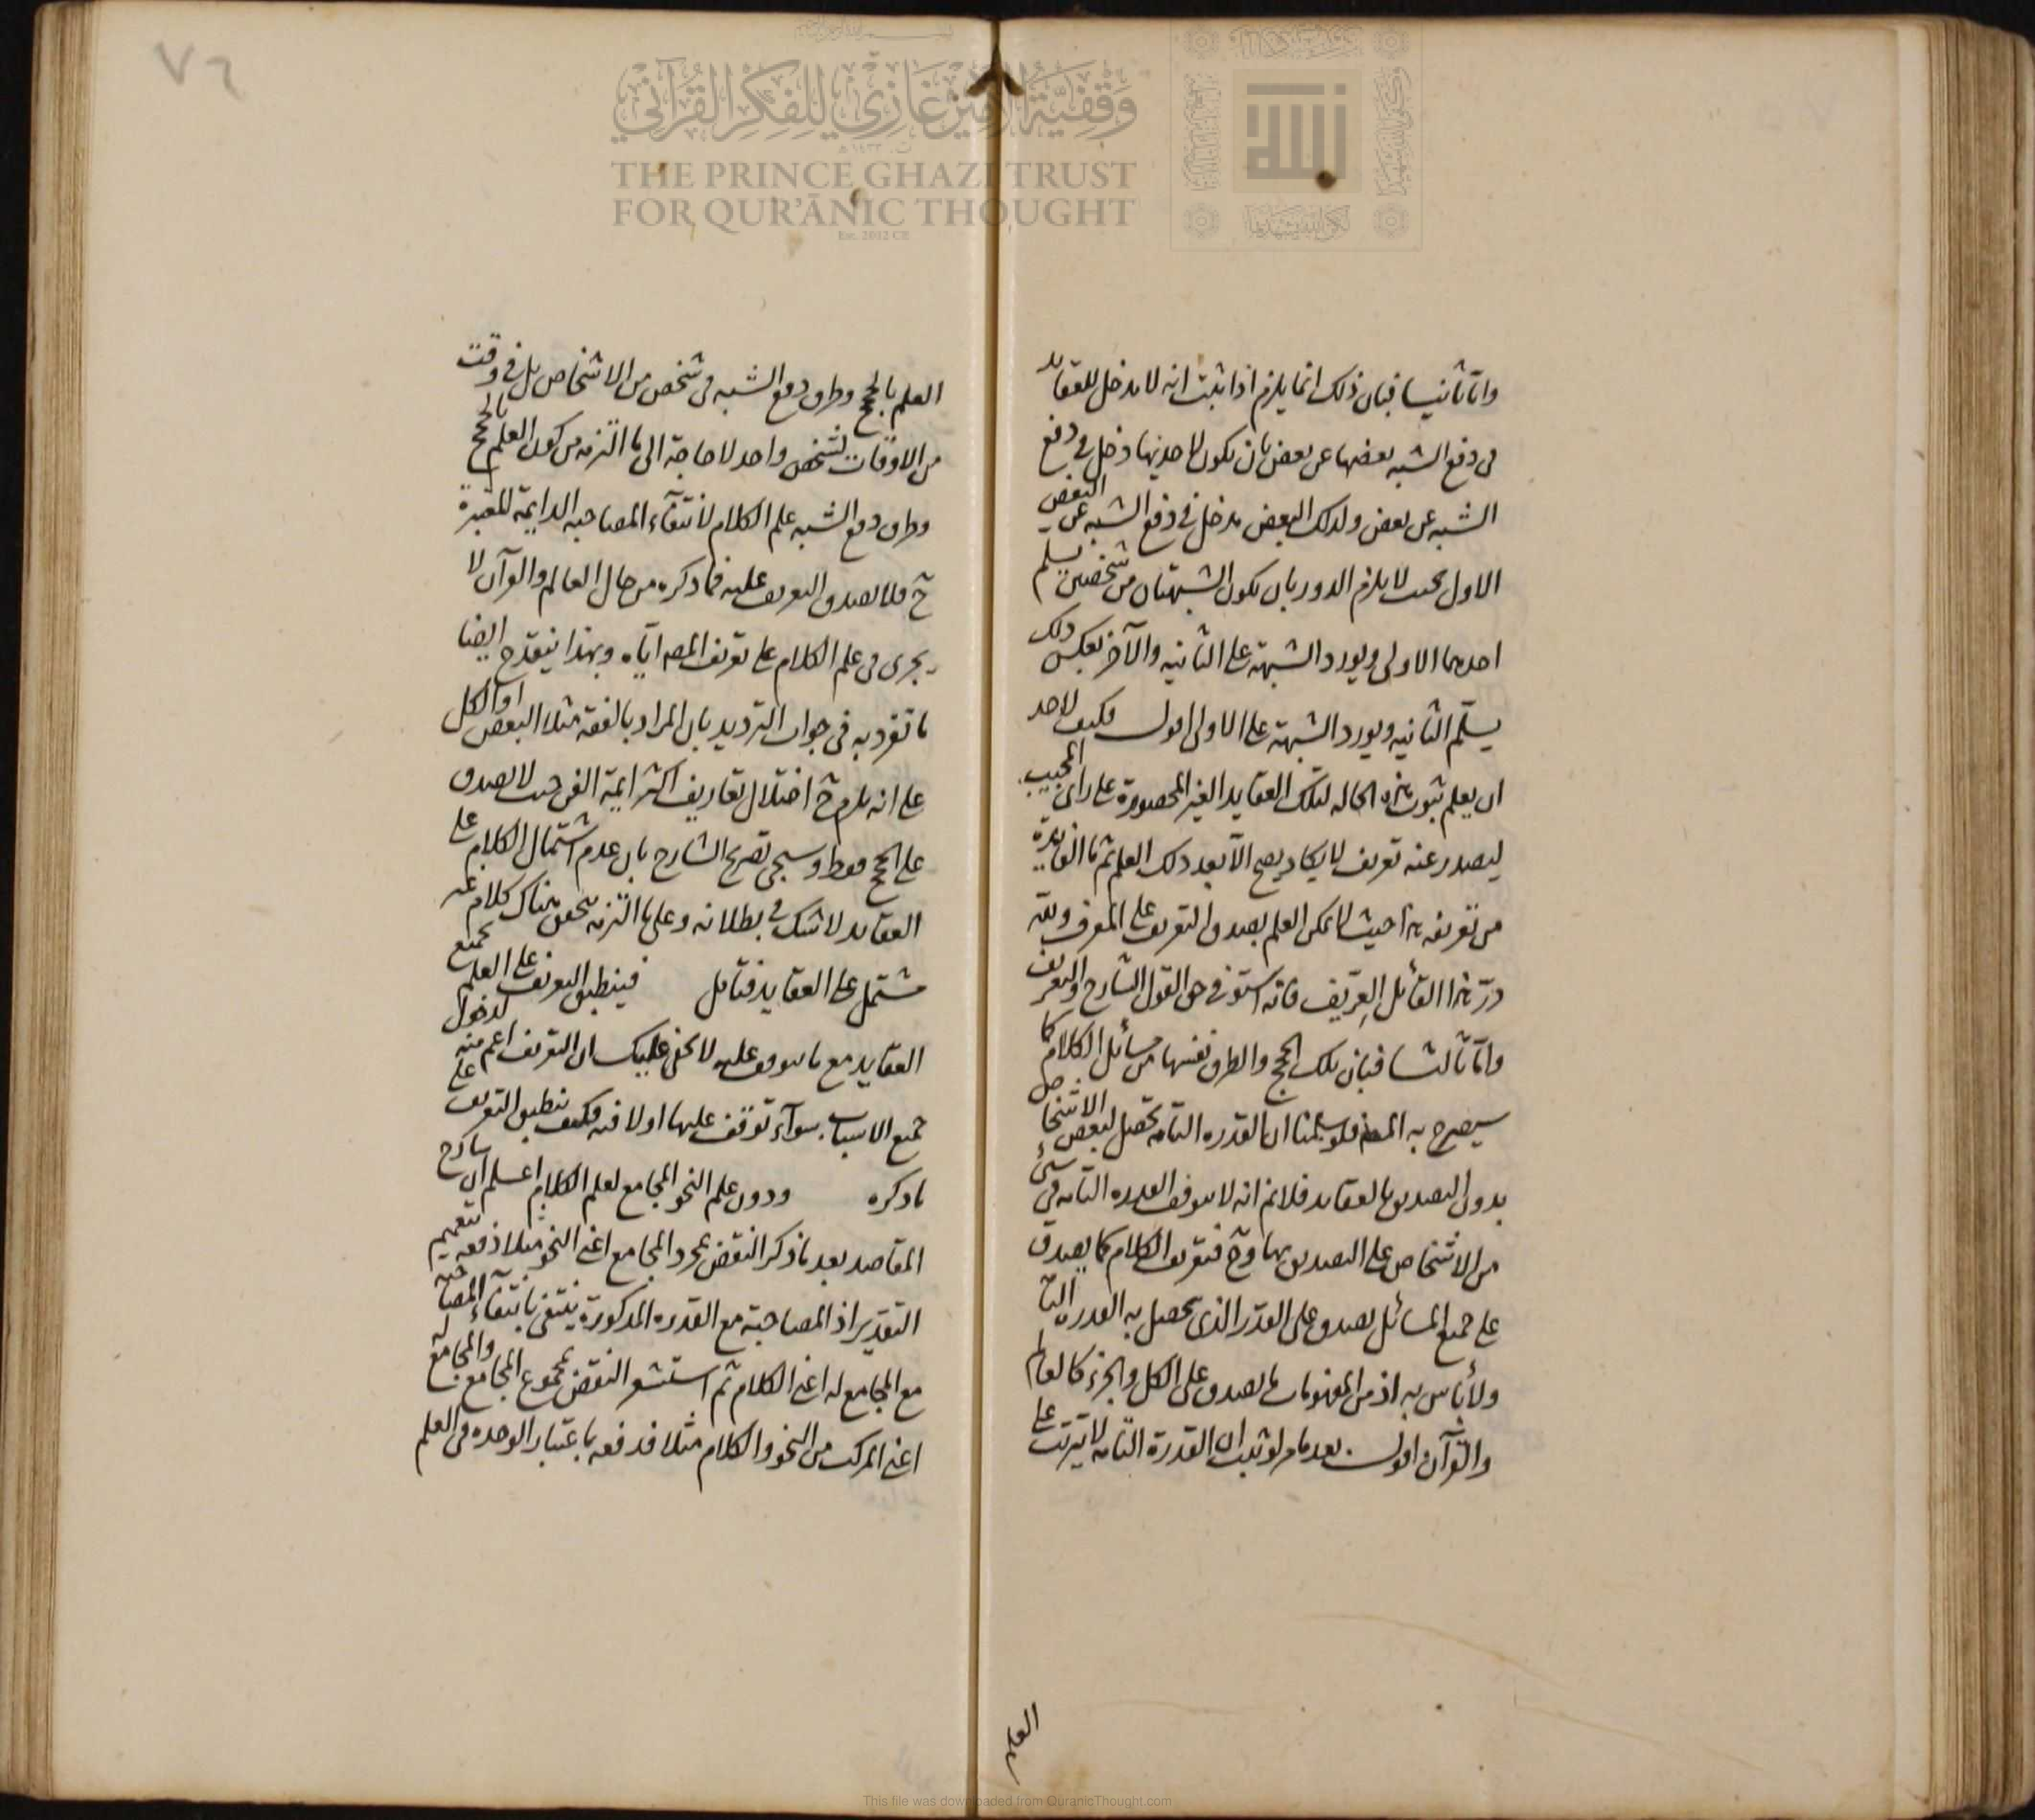 وقفية الأمير غازي للفكر القرآني
THE PRINCE GHAZI TRUST
FOR QUR'ĀNIC THOUGHT
Est. 2012 CE
واما ثانيا فبان ذلك انما يلزم اذا ثبت انه لا مدخل للعقايد
فى دفع الشبه بعضها عن بعض بان يكون لاحديها دخل فى دفع
الشبه عن بعض ولذلك البعض مدخل فى دفع الشبه عن البعض
الاول بحيث لا يلزم الدور بان يكون الشبهتان من شخصين يسلم
احدهما الاولى ويورد الشبهة على الثانيه والآخر بعكس ذلك
يسلّم الثانيه ويورد الشبهة على الاولى اقول فكيف لاحد
ان يعلم ثبوت هذه الحاله لتلك العقايد الغير المحصورة على راى المجيب
ليصدر عنه تعريف لا يكاد يصح الّا بعد ذلك العلم ثم ما الفايدة
من تعريفه هذا حيث لا يمكن العلم بصدق التعريف على المعرف ولله
درّ هذا القائل العريف فانه استوفى حق القول الشارح والتعريف
واما ثالثا فبان تلك الحجج والطرق نفسها من مسائل الكلام كما
سيصرح به المصـ فلو سلمنا ان القدره التامه تحصل لبعض الاشخاص
بدون التصديق بالعقايد فلانم انه لا يتوقف القدره التامه فى شئ
من الاشخاص على التصديق بها وحٓ فتعريف الكلام كما يصدق
على جميع المسائل يصدق على القدر الذى يحصل به القدره التا
ولا بأس به اذ من المفهومات ما يصدق على الكل والجزء كالعالم
والقرآن اقول بعد ما مر لو ثبت ان القدرة التامه لا يترتب على
العلم
٧٦
العلم بالحجج وطرق دفع الشبه فى شخص من الاشخاص بل فى وقت
من الاوقات لشخص واحد لا حاجة الى ما التزمه من كون العلم بالحجج
وطرق دفع الشبه علم الكلام لانتفآء المصاحبه الدايمة المعتبرة
حٓ فلا يصدق التعريف عليه فما ذكره من حال العالم والقرآن لا
يجرى فى علم الكلام على تعريف المصـ اياه وبهذا ينقدح ايضا
ما تفرد به فى جواب الترديد بان المراد بالفقه مثلا البعض او الكل
على انه يلزم حٓ اختلال تعاريف اكثر ايمة الفن حيث لا يصدق
على الحجج فقط وسيجئ تصريح الشارح بان عدم اشتمال الكلام على
العقايد لا شك فى بطلانه وعلى ما التزمه يتحقق هناك كلام غير
مشتمل على العقايد فتامل فينطبق التعريف على العلم بجميع
العقايد مع ما يتوقف عليه لا يخفى عليك ان التعريف اعم منه لدخول
جميع الاسباب سوآء توقف عليها او لا فيه فكيف ينطبق التعريف على
ما ذكره ودون علم النحو المجامع لعلم الكلام اعلم ان شارح
المقاصد بعد ما ذكر النقض بمجرد المجامع اعنى النحو مثلا دفعه بتعميم
التقدير اذ المصاحبة مع القدره المذكورة ينتفى بانتفآء المصاحبة
مع المجامع له اعنى الكلام ثم استشعر النقض بمجموع المجامع والمجامع له
اعنى المركب من النحو والكلام مثلا فدفعه باعتبار الوحده فى العلم
This file was downloaded from QuranicThought.com